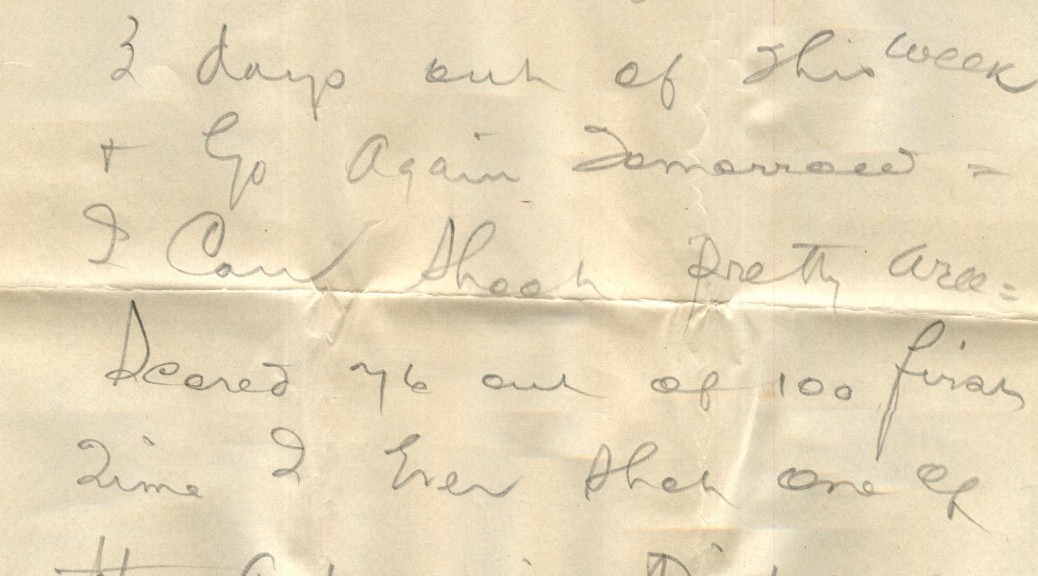 3 days out of this week
+ Go Again Tomorrow =
I Can Shoot Pretty
Scored 76 out of 100 first
Time I Ever Shot one of